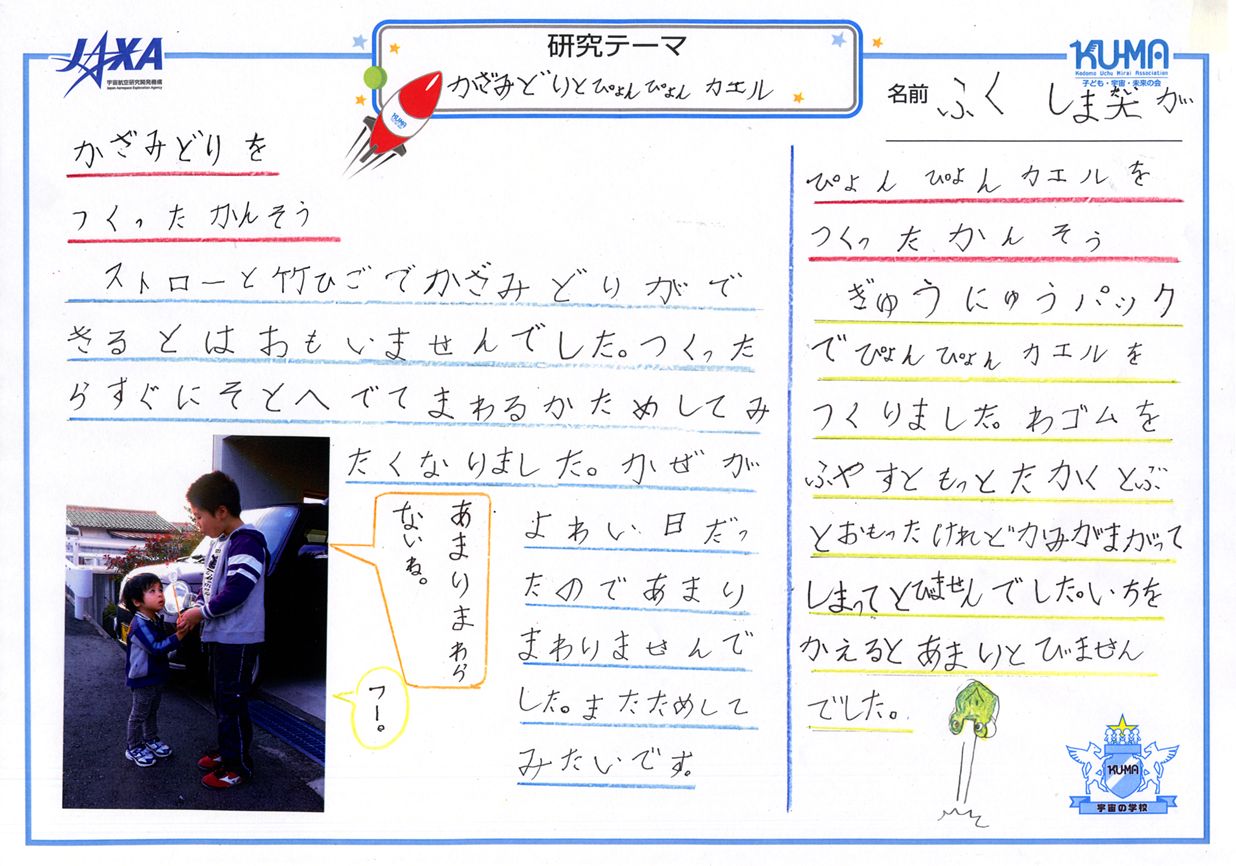 JAXA
宇宙航空研究開発機構
Japan Aerospace Exploration Agency
研究テーマ
かざみどりとぴょんぴょん カエル
KUMA
KUMA
Kodomo Uchu Mirai Association
子ども・宇宙・未来の会
名前 ふく しま が
かざみどりを
つくった かんそう
ストローと竹ひごでかざみどりがで
きるとはおもいませんでした。つくった
らすぐにそとへでてまわるかためしてみ
たくなりました。かぜが
よわい日だっ
たのであまり
まわりませんで
した。またためして
みたいです。
あまりまわら
ないね。
フー。
ぴょんぴょんカエルを
つくったかんそう
ぎゅうにゅうパック
でぴょんぴょんカエルを
つくりました。わゴムを
ふやすともっとたかくとぶ
とおもったけれどかみがまがって
しまってとびませんでした。いちを
かえるとあまりとびません
でした。
KUMA
宇宙の学校